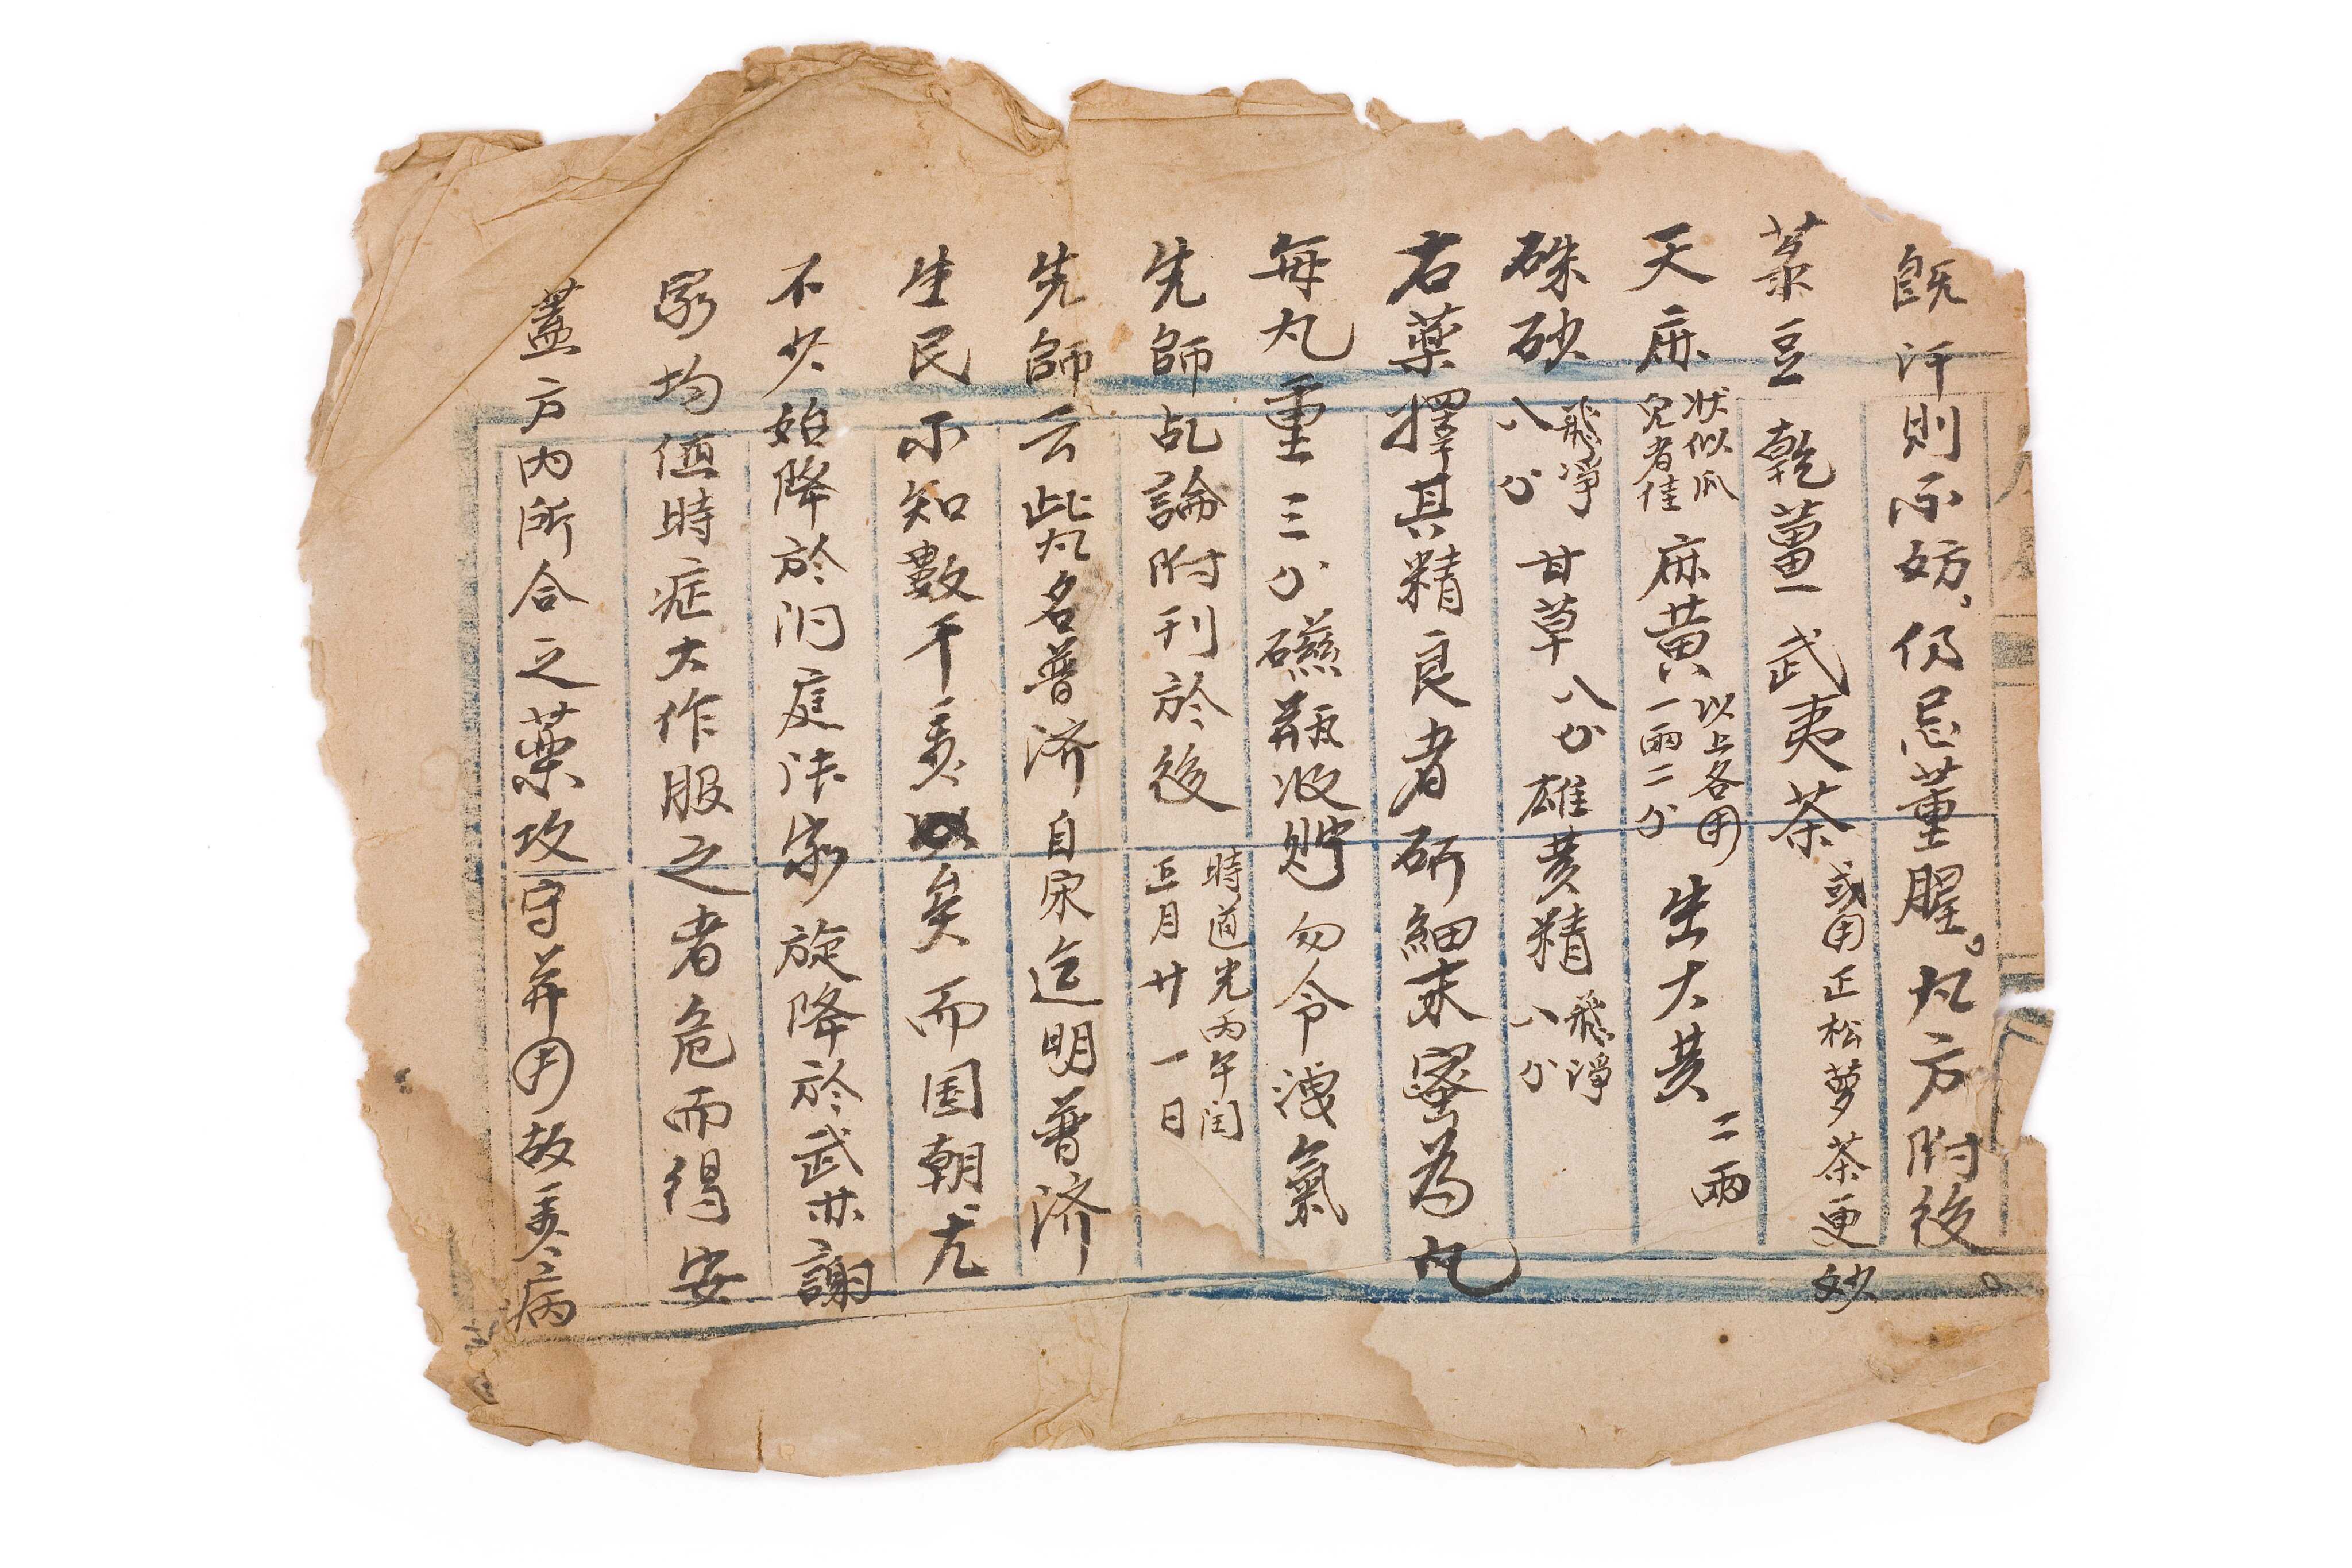 既汗則不妨，仍忌薑腥。丸方附後。
菉豆 乾薑 武夷茶 或用正松蘿茶更妙
天麻 狀似瓜兒者佳 麻黃 以上各用一兩二分 生大黄 二兩
硃砂 飛淨八分 甘草 八分 雄黄精 飛淨八分
右藥擇其精良者研細末蜜為丸
每丸重三分磁瓶收貯勿令洩氣
先師乩論附刊於後 時道光丙午閏五月廿一日
先師云此丸名普济自宋迄明普济
生民不知數千万矣而国朝尤
不少始降於洞庭法家旋降於武林謝
家均值時症大作服之者危而得安
蓋方内所合之藥攻守並用故表病